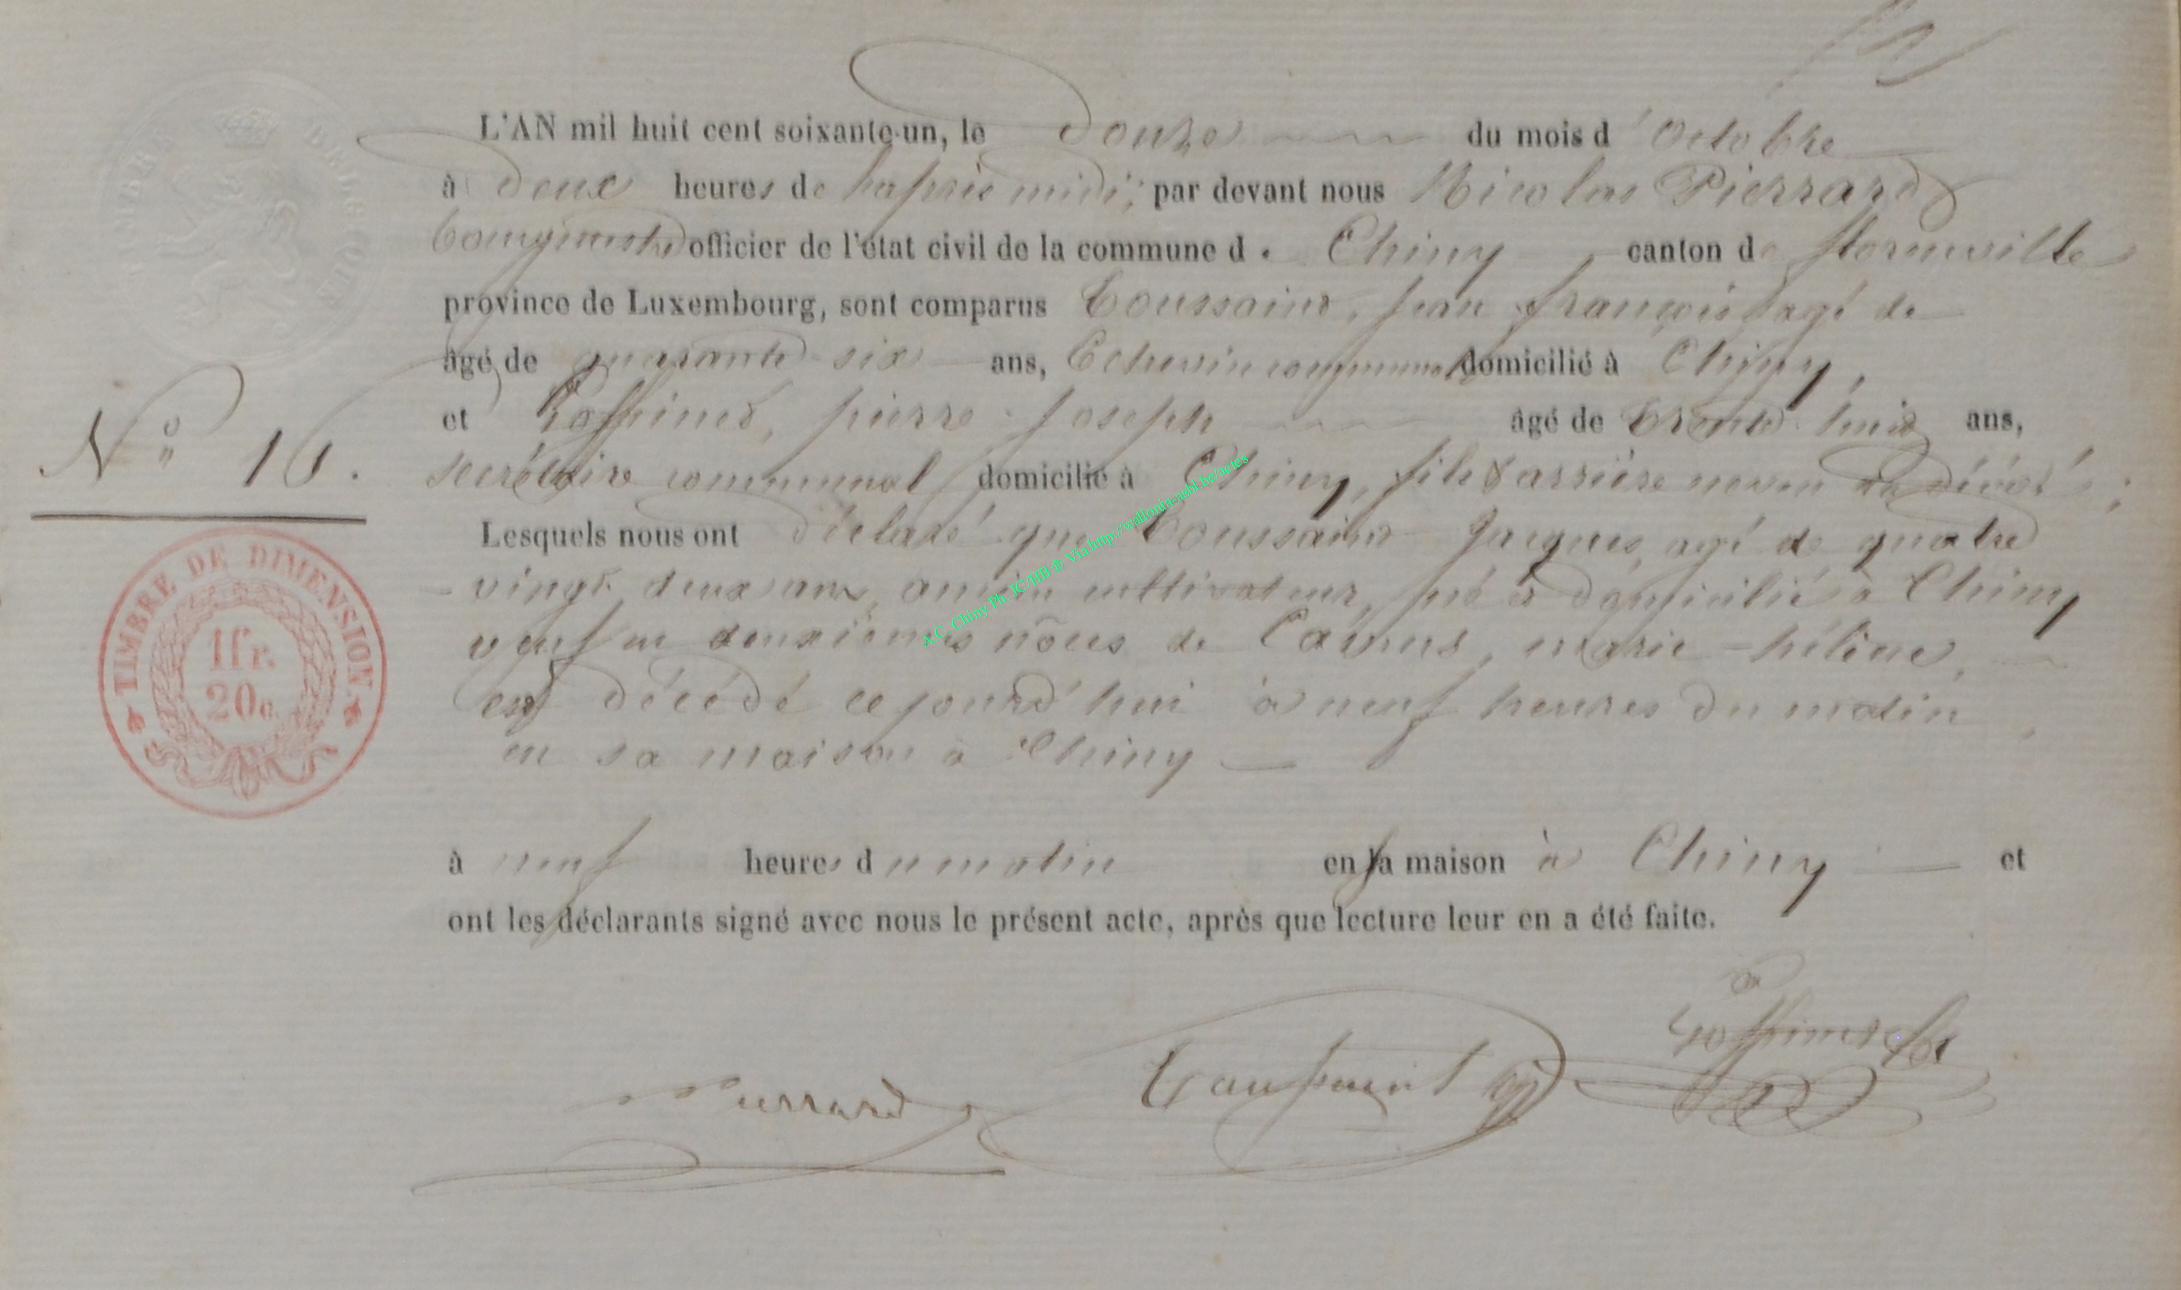 TIMBRE BELGIQUE
L'AN mil huit cent soixante-un, le douze du mois d'Octobre
à deux heures de l'après midi, par devant nous Nicolas Pierrard
bourgmestre officier de l'état civil de la commune de Chiny, canton de florenville
province de Luxembourg, sont comparus Toussaint, jean françois agé de
âgé de quarante six ans, Echevin communal domicilié à Chiny,
et Goffinet, pierre joseph âgé de trente huit ans,
secrétaire communal domicilié à Chiny, fils & arrière neveu du décédé;
Lesquels nous ont déclaré que Toussaint Jacques, agé de quatre
vingt deux ans, ancien cultivateur, né & domicilié à Chiny
veuf en deuxièmes nôces de marie-hélène,
est décédé ce jourd'hui à neuf heures du matin,
en sa maison à Chiny
à neuf heures du matin en sa maison à Chiny et
ont les déclarants signé avec nous le présent acte, après que lecture leur en a été faite.
N° 16.
TIMBRE DE DIMENSION.
1fr.
20c.
A.C. Chiny Ph. JC/HB © Via http://wallonica
Pierrard Toussaint Goffinet